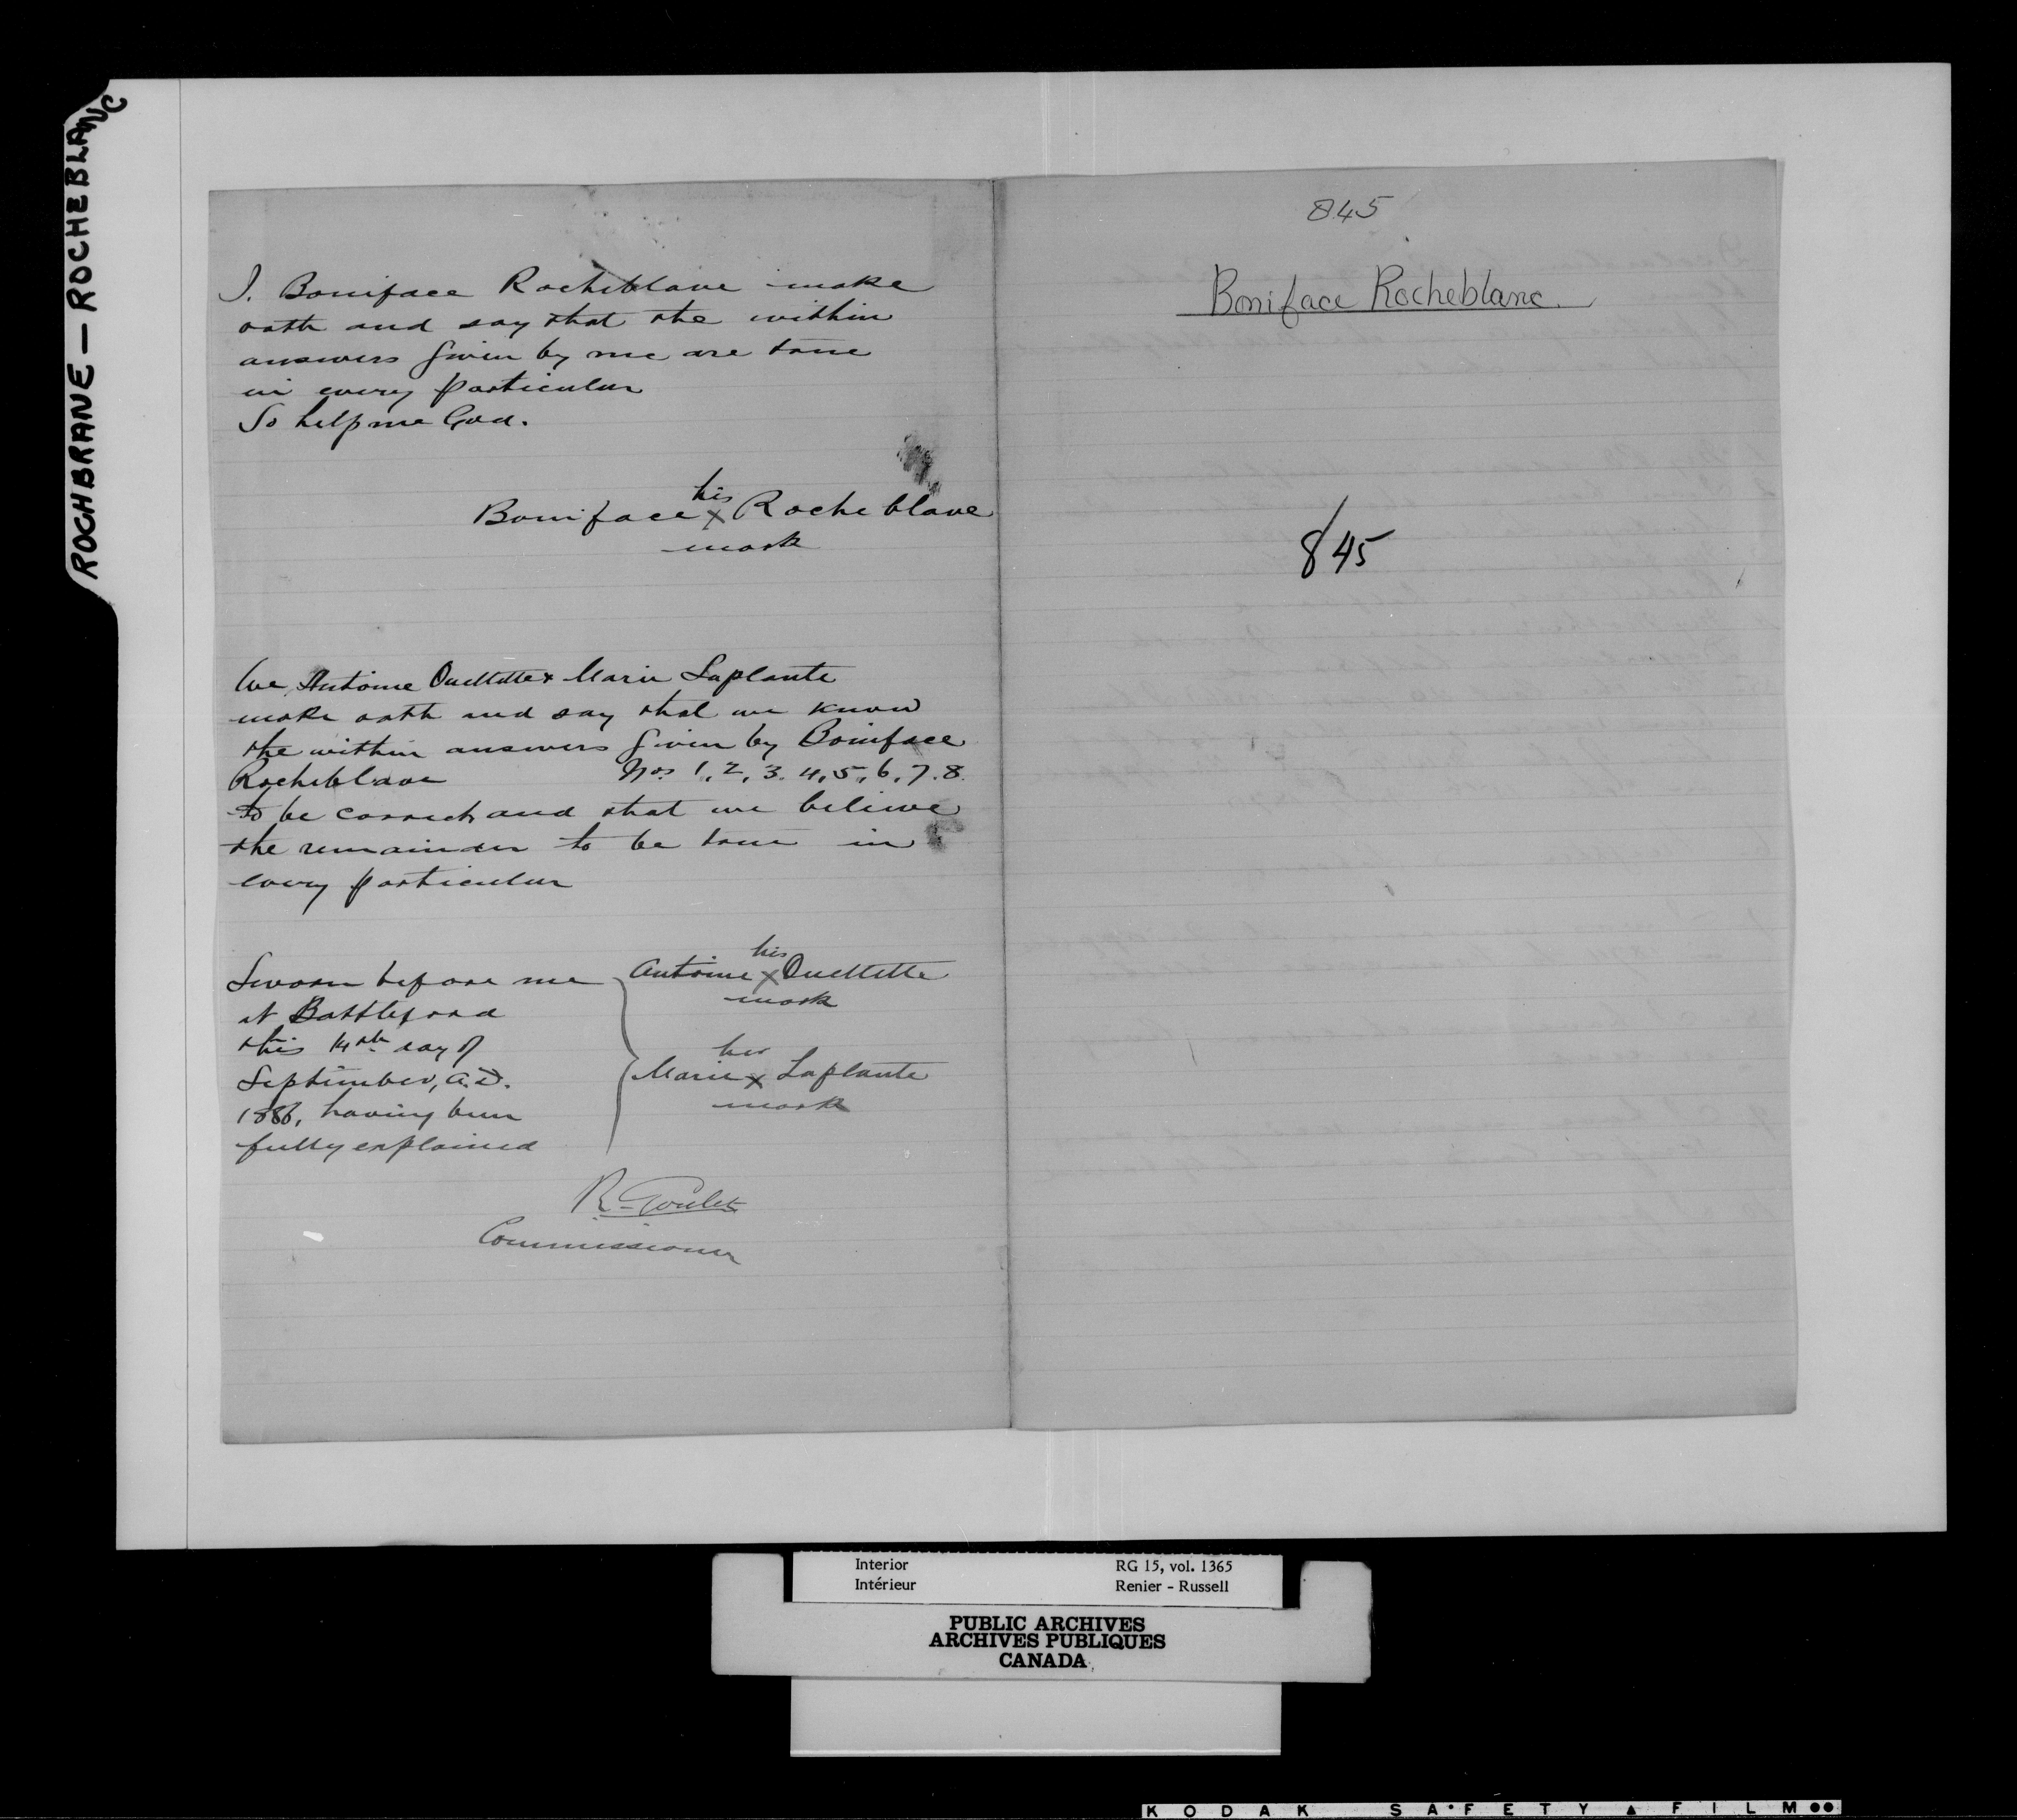 ROCHBRANE — ROCHEBLANC
I, Boniface Rocheblave make
oath and say that the within
answers given by me are true
in every particular
So help me God.
his
Boniface x Rocheblave
mark
We, Antoine Ouellette & Marie Laplante
make oath and say that we know
the within answers given by Boniface
Rocheblave Nos 1, 2, 3, 4, 5, 6, 7, 8.
to be correct and that we believe
the remainder to be true in
every particular
Sworn before me
at Battleford
this 14th day of
September, A.D.
1886, having been
fully explained
his
Antoine x Ouellette
mark
her
Marie x Laplante
mark
R. Goulet
Commissioner
845
Boniface Rocheblanc.
845
Interior RG 15, vol. 1365
Intérieur Renier - Russell
PUBLIC ARCHIVES
ARCHIVES PUBLIQUES
CANADA
KODAK SAFETY FILM